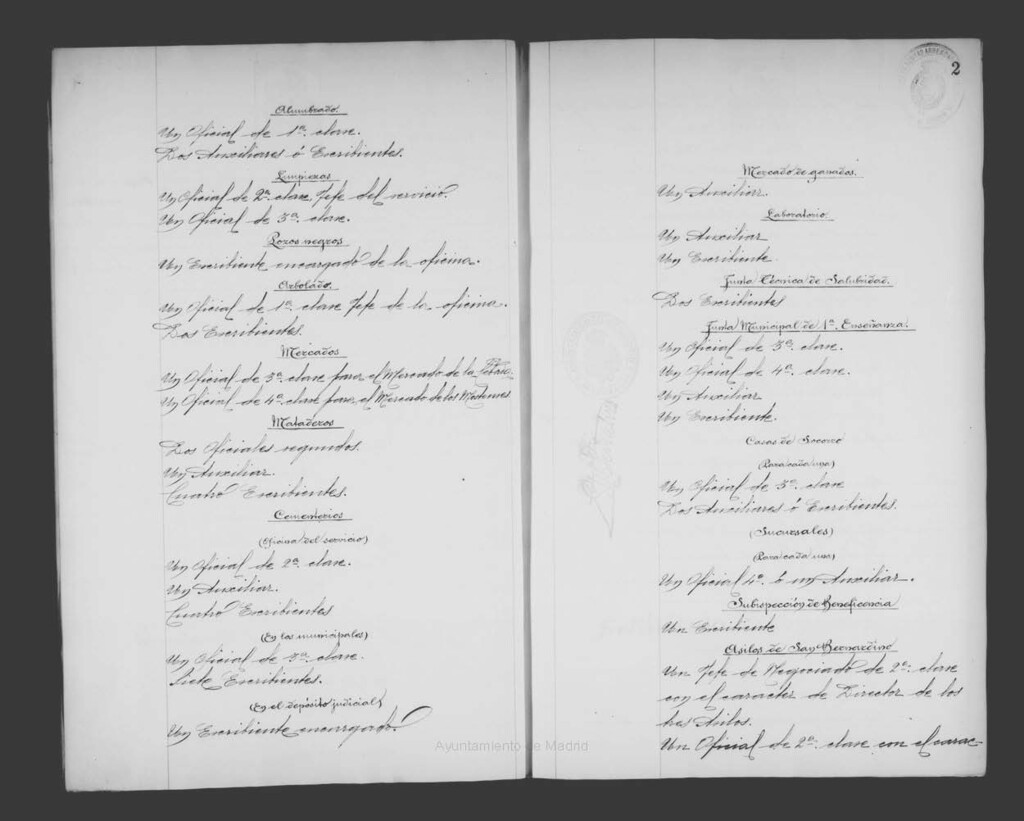 Alumbrado.
Un Oficial de 1ª. clase.
Dos Auxiliares ó Escribientes.
Limpiezas
Un Oficial de 2ª. clase Jefe del servicio.
Un Oficial de 3ª. clase.
Pozos negros
Un Escribiente encargado de la oficina.
Arbolado.
Un Oficial de 1ª. clase Jefe de la oficina.
Dos Escribientes.
Mercados
Un Oficial de 3ª. clase para el Mercado de la Cebada.
Un Oficial de 4ª. clase para el Mercado de los Mostenses.
Mataderos
Dos Oficiales segundos.
Un Auxiliar.
Cuatro Escribientes.
Cementerios
(Oficina del servicio)
Un Oficial de 2ª. clase.
Un Auxiliar.
Cuatro Escribientes
(En los municipales)
Un Oficial de 3ª. clase.
Siete Escribientes.
(En el depósito judicial)
Un Escribiente encargado.
2
Mercado de ganados.
Un Auxiliar.
Laboratorio.
Un Auxiliar
Un Escribiente.
Junta Técnica de Salubridad.
Dos Escribientes
Junta Municipal de 1ª. Enseñanza.
Un Oficial de 3ª. clase.
Un Oficial de 4ª. clase.
Un Auxiliar
Un Escribiente.
Casas de Socorro
(Para cada una)
Un Oficial de 3ª. clase
Dos Auxiliares ó Escribientes.
(Sucursales)
(Para cada una)
Un Oficial 4º. ó un Auxiliar.
Subinspección de Beneficencia
Un Escribiente
Asilos de San Bernardino
Un Jefe de Negociado de 2ª. clase
con el carácter de Director de los
tres Asilos.
Un Oficial de 2ª. clase con el carac-
Ayuntamiento de Madrid